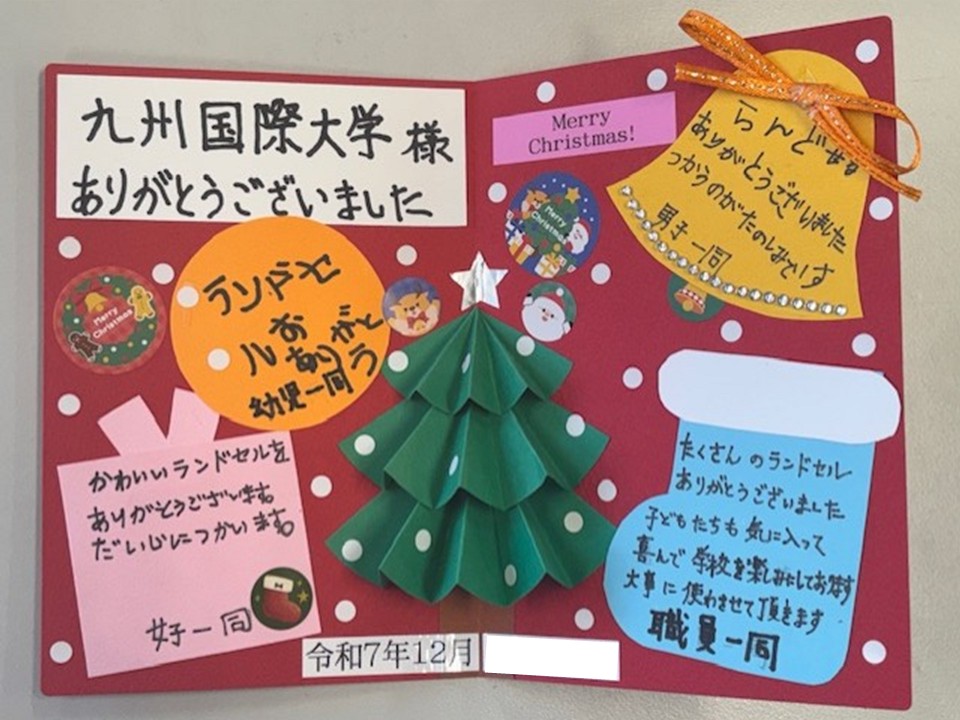 九州国際大学様
ありがとうございました
Merry
Christmas!
らんどせる
ありがとうございました
つかうのがたのしみです
男子一同
Merry
Christmas
ランドセ
ル お
ありがと
う
幼児一同
かわいいランドセルを
ありがとうございます
だいじにつかいます
女子一同
たくさんのランドセル
ありがとうございました
子どもたちも気に入って
喜んで学校を楽しみにしております
大事に使わせて頂きます
職員一同
令和7年12月